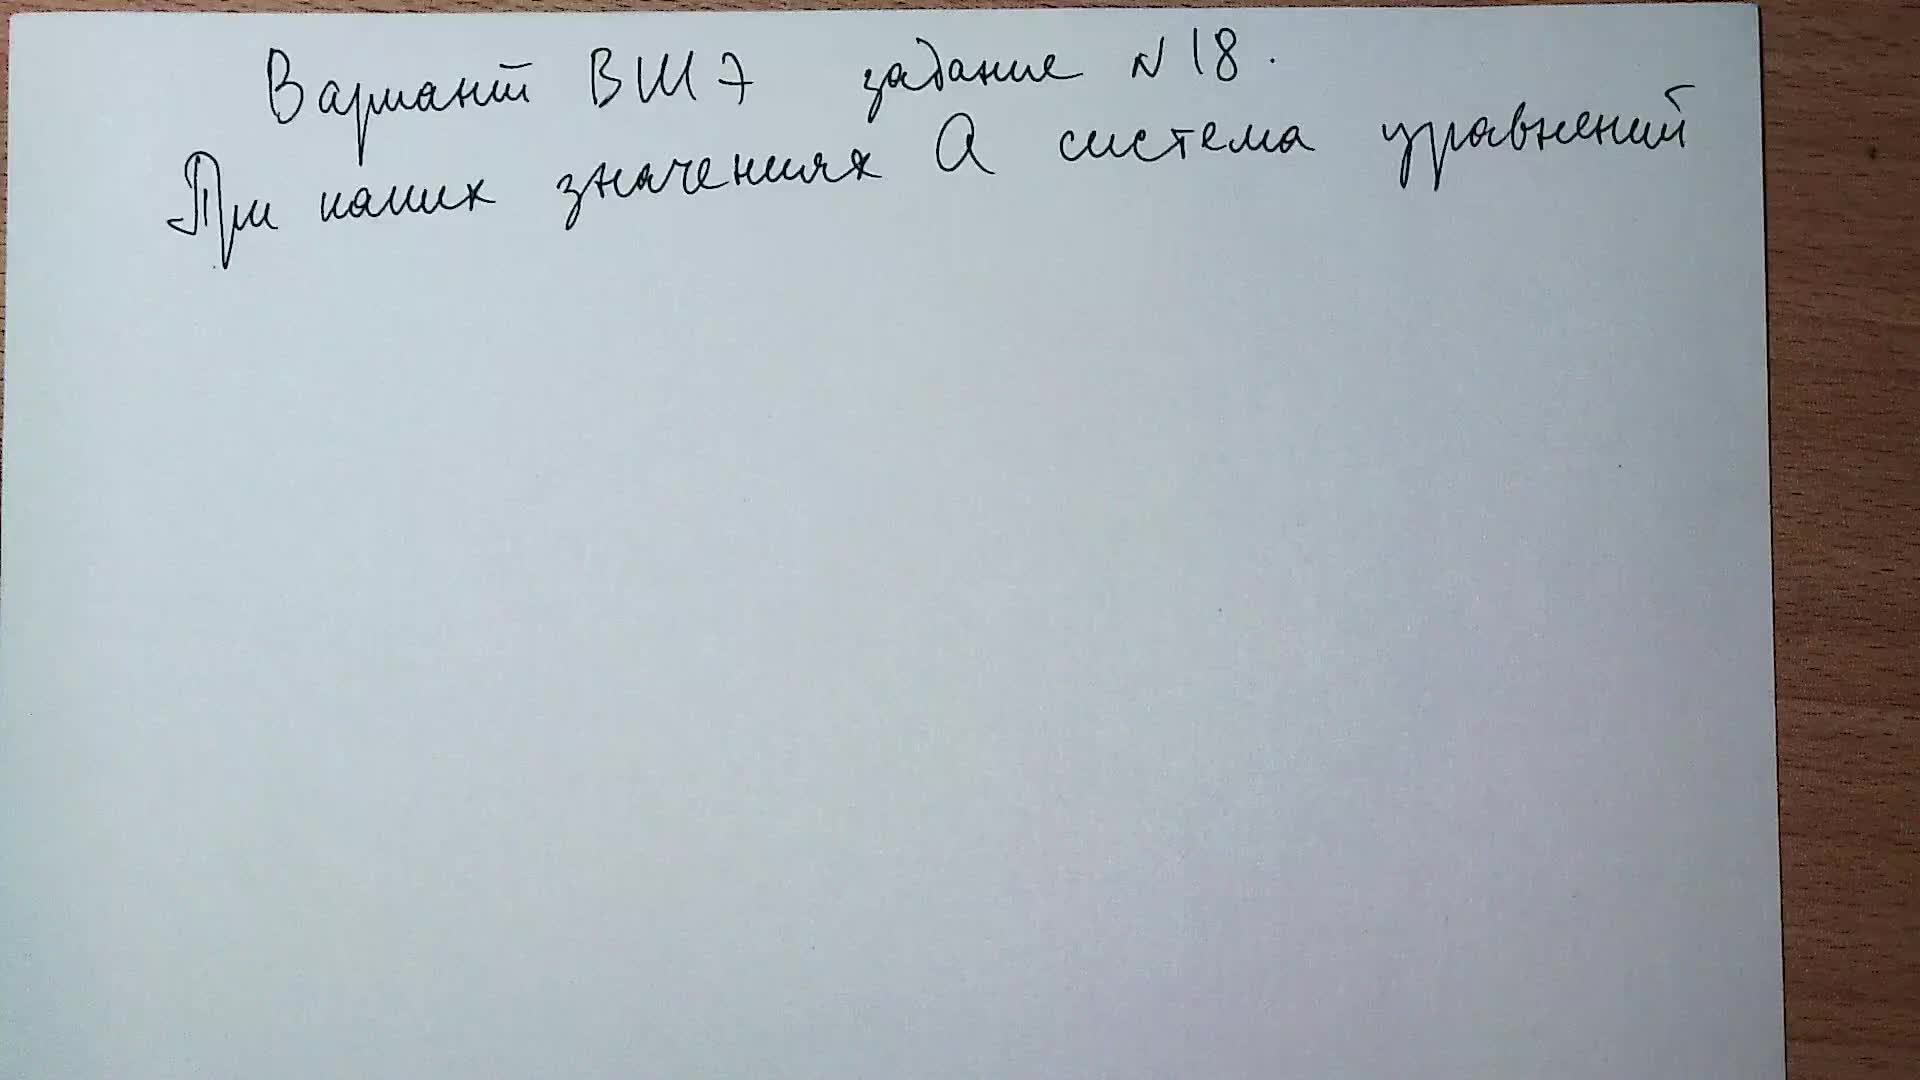 Вариант ВШЭ задание N 18.
При каких значениях a система уравнений